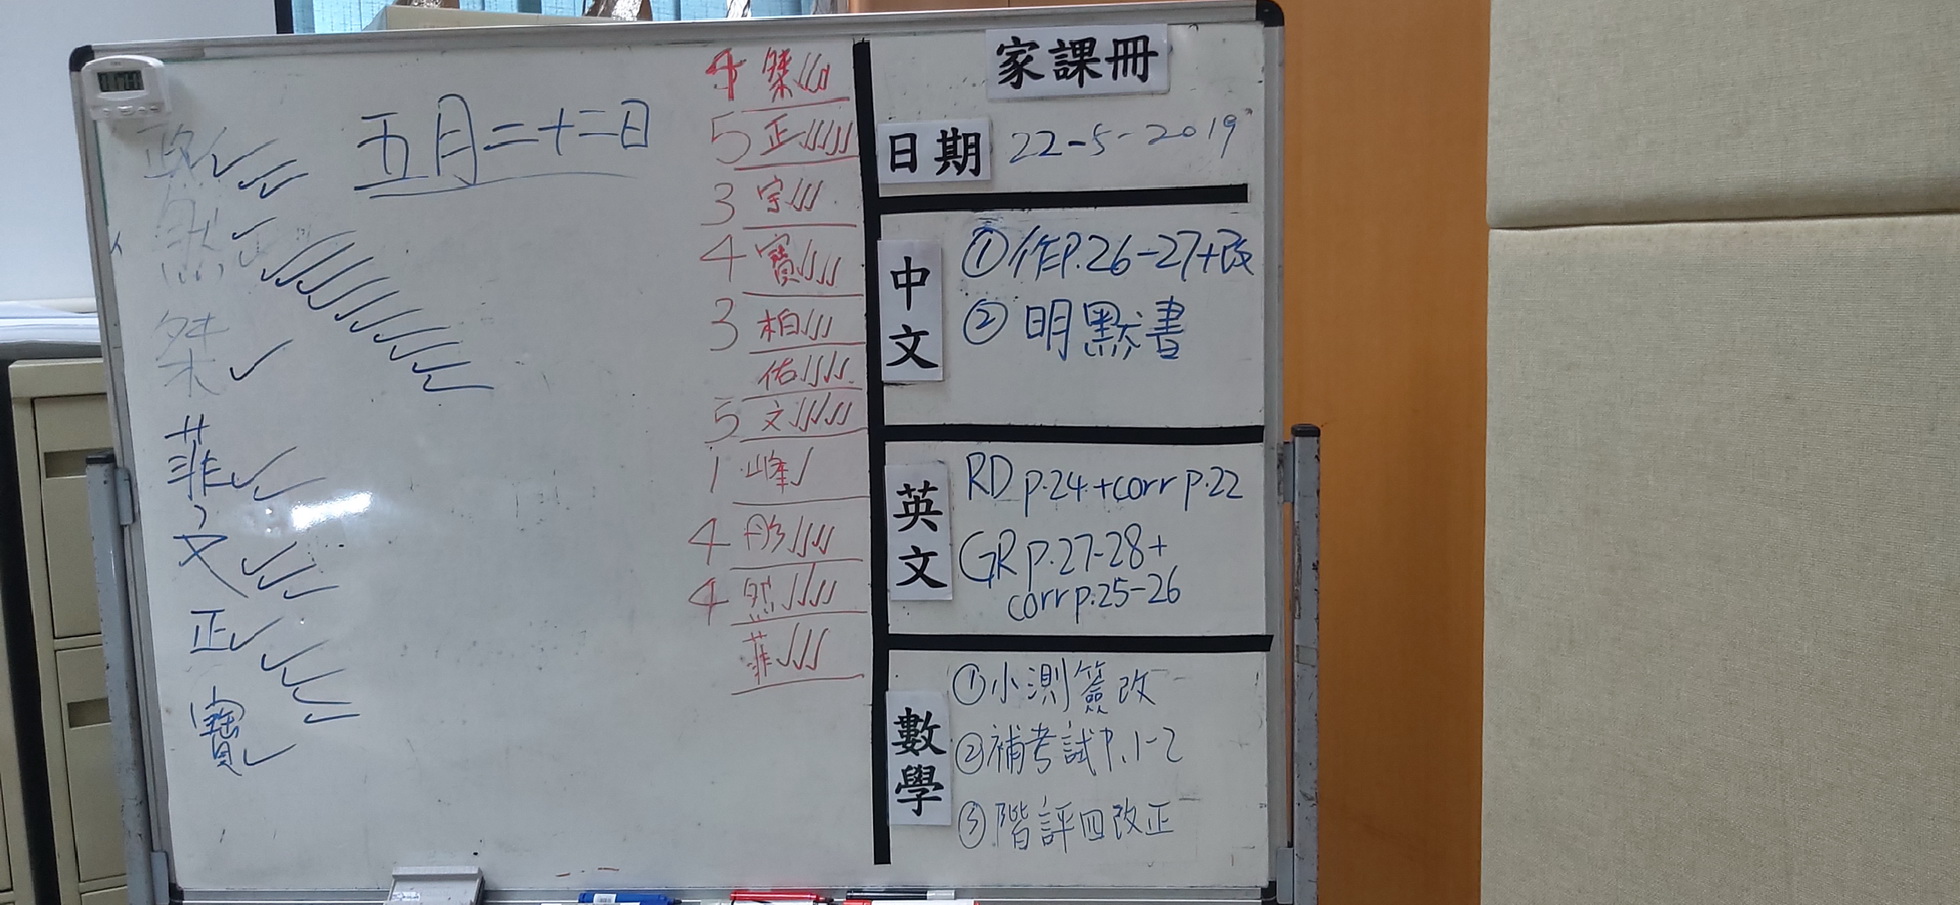 五月二十二日
政
然
桀
菲
文
正
寶
4 桀
5 正
3 宗
4 寶
3 柏
佑
5 文
1 峰
4 彤
4 然
菲
家課冊
日期 22-5-2019
中文
①作P.26-27+改
②明默書
英文
RD p.24+corr p.22
GR p.27-28+
corr p.25-26
數學
①小測簽改
②補考試P.1-2
③階評四改正